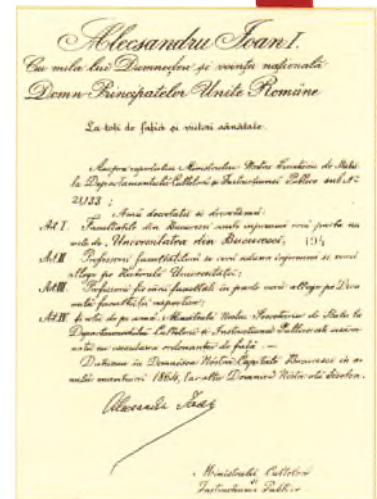 Alecsandru Ioan I.
Cu mila lui Dumnezeu și voința națională
Domn Principatelor Unite Române
La toți de față și viitori sănătate.
Asupra raportului Ministrului Nostru Secretariu de Stat
la Departamentul Cultelor și Instrucțiunei Publice sub No
21,133 ;
Amu decretatu si decretămu:
Art I. Facultatile din Bucuresci unite impreună vorü purta nu
mele de „Universitatea din Bucuresci„ 194
Art II. Professorii facultatilorü se vorü aduna impreună si vorü
allege pe Rectorulu Universităței;
Art III. Professorii fie-cărei facultati in parte vorü allege pe Deca
nulü facultății respective;
Art IV. si celu de pe urmă. Ministrulü Nostru Secretariu de Statu la
Departamentulu Cultelorü si Instructiunei Publice este insărci
natu cu esecutarea ordonantei de față. —
Datu in Domnésca Nóstră Capitală Bucuresci in a
nulü mantuirei 1864, Iar allu Domniei Nóstre allu Séselea.
Alecsandru Ioan
Ministrulü Cultelorü
și
Instructiunei Publice